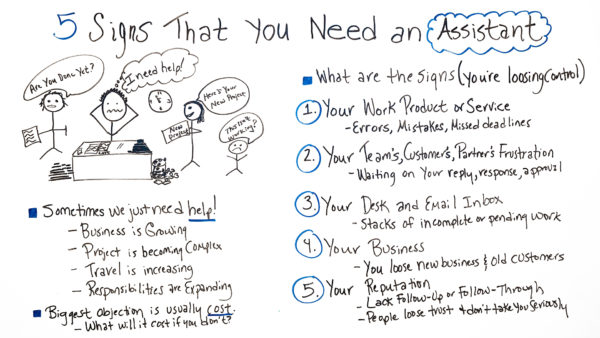 5 Signs That You Need an Assistant
Are You Done Yet?
I need help!
Here's Your
New Project
New
Project
This Isn't
Working!
Sometimes we just need help!
- Business is Growing
- Project is becoming Complex
- Travel is increasing
- Responsibilities are Expanding
Biggest objection is usually cost.
- What will it cost if you don't?
What are the signs (you're loosing control)
1. Your Work Product or Service
- Errors, Mistakes, Missed deadlines
2. Your Team's, Customer's, Partner's Frustration
- Waiting on Your reply, response, approval
3. Your Desk and Email Inbox
- Stacks of incomplete or pending work
4. Your Business
- You loose new business & old customers
5. Your Reputation
- Lack Follow-Up or Follow-Through
- People loose trust & don't take you seriously